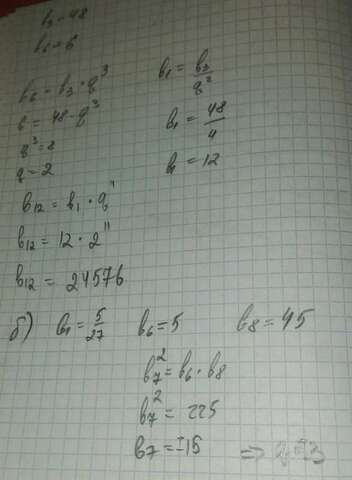 b₃ = 48
b₆ = 6
b₆ = b₃ · q³
6 = 48 · q³
q³ = 8
q = 2
b₁ = b₃/q²
b₁ = 48/4
b₁ = 12
b₁₂ = b₁ · q¹¹
b₁₂ = 12 · 2¹¹
b₁₂ = 24576
б) b₁ = 5/27 b₆ = 5 b₈ = 45
b₇² = b₆ · b₈
b₇² = 225
b₇ = ±15 ⇒